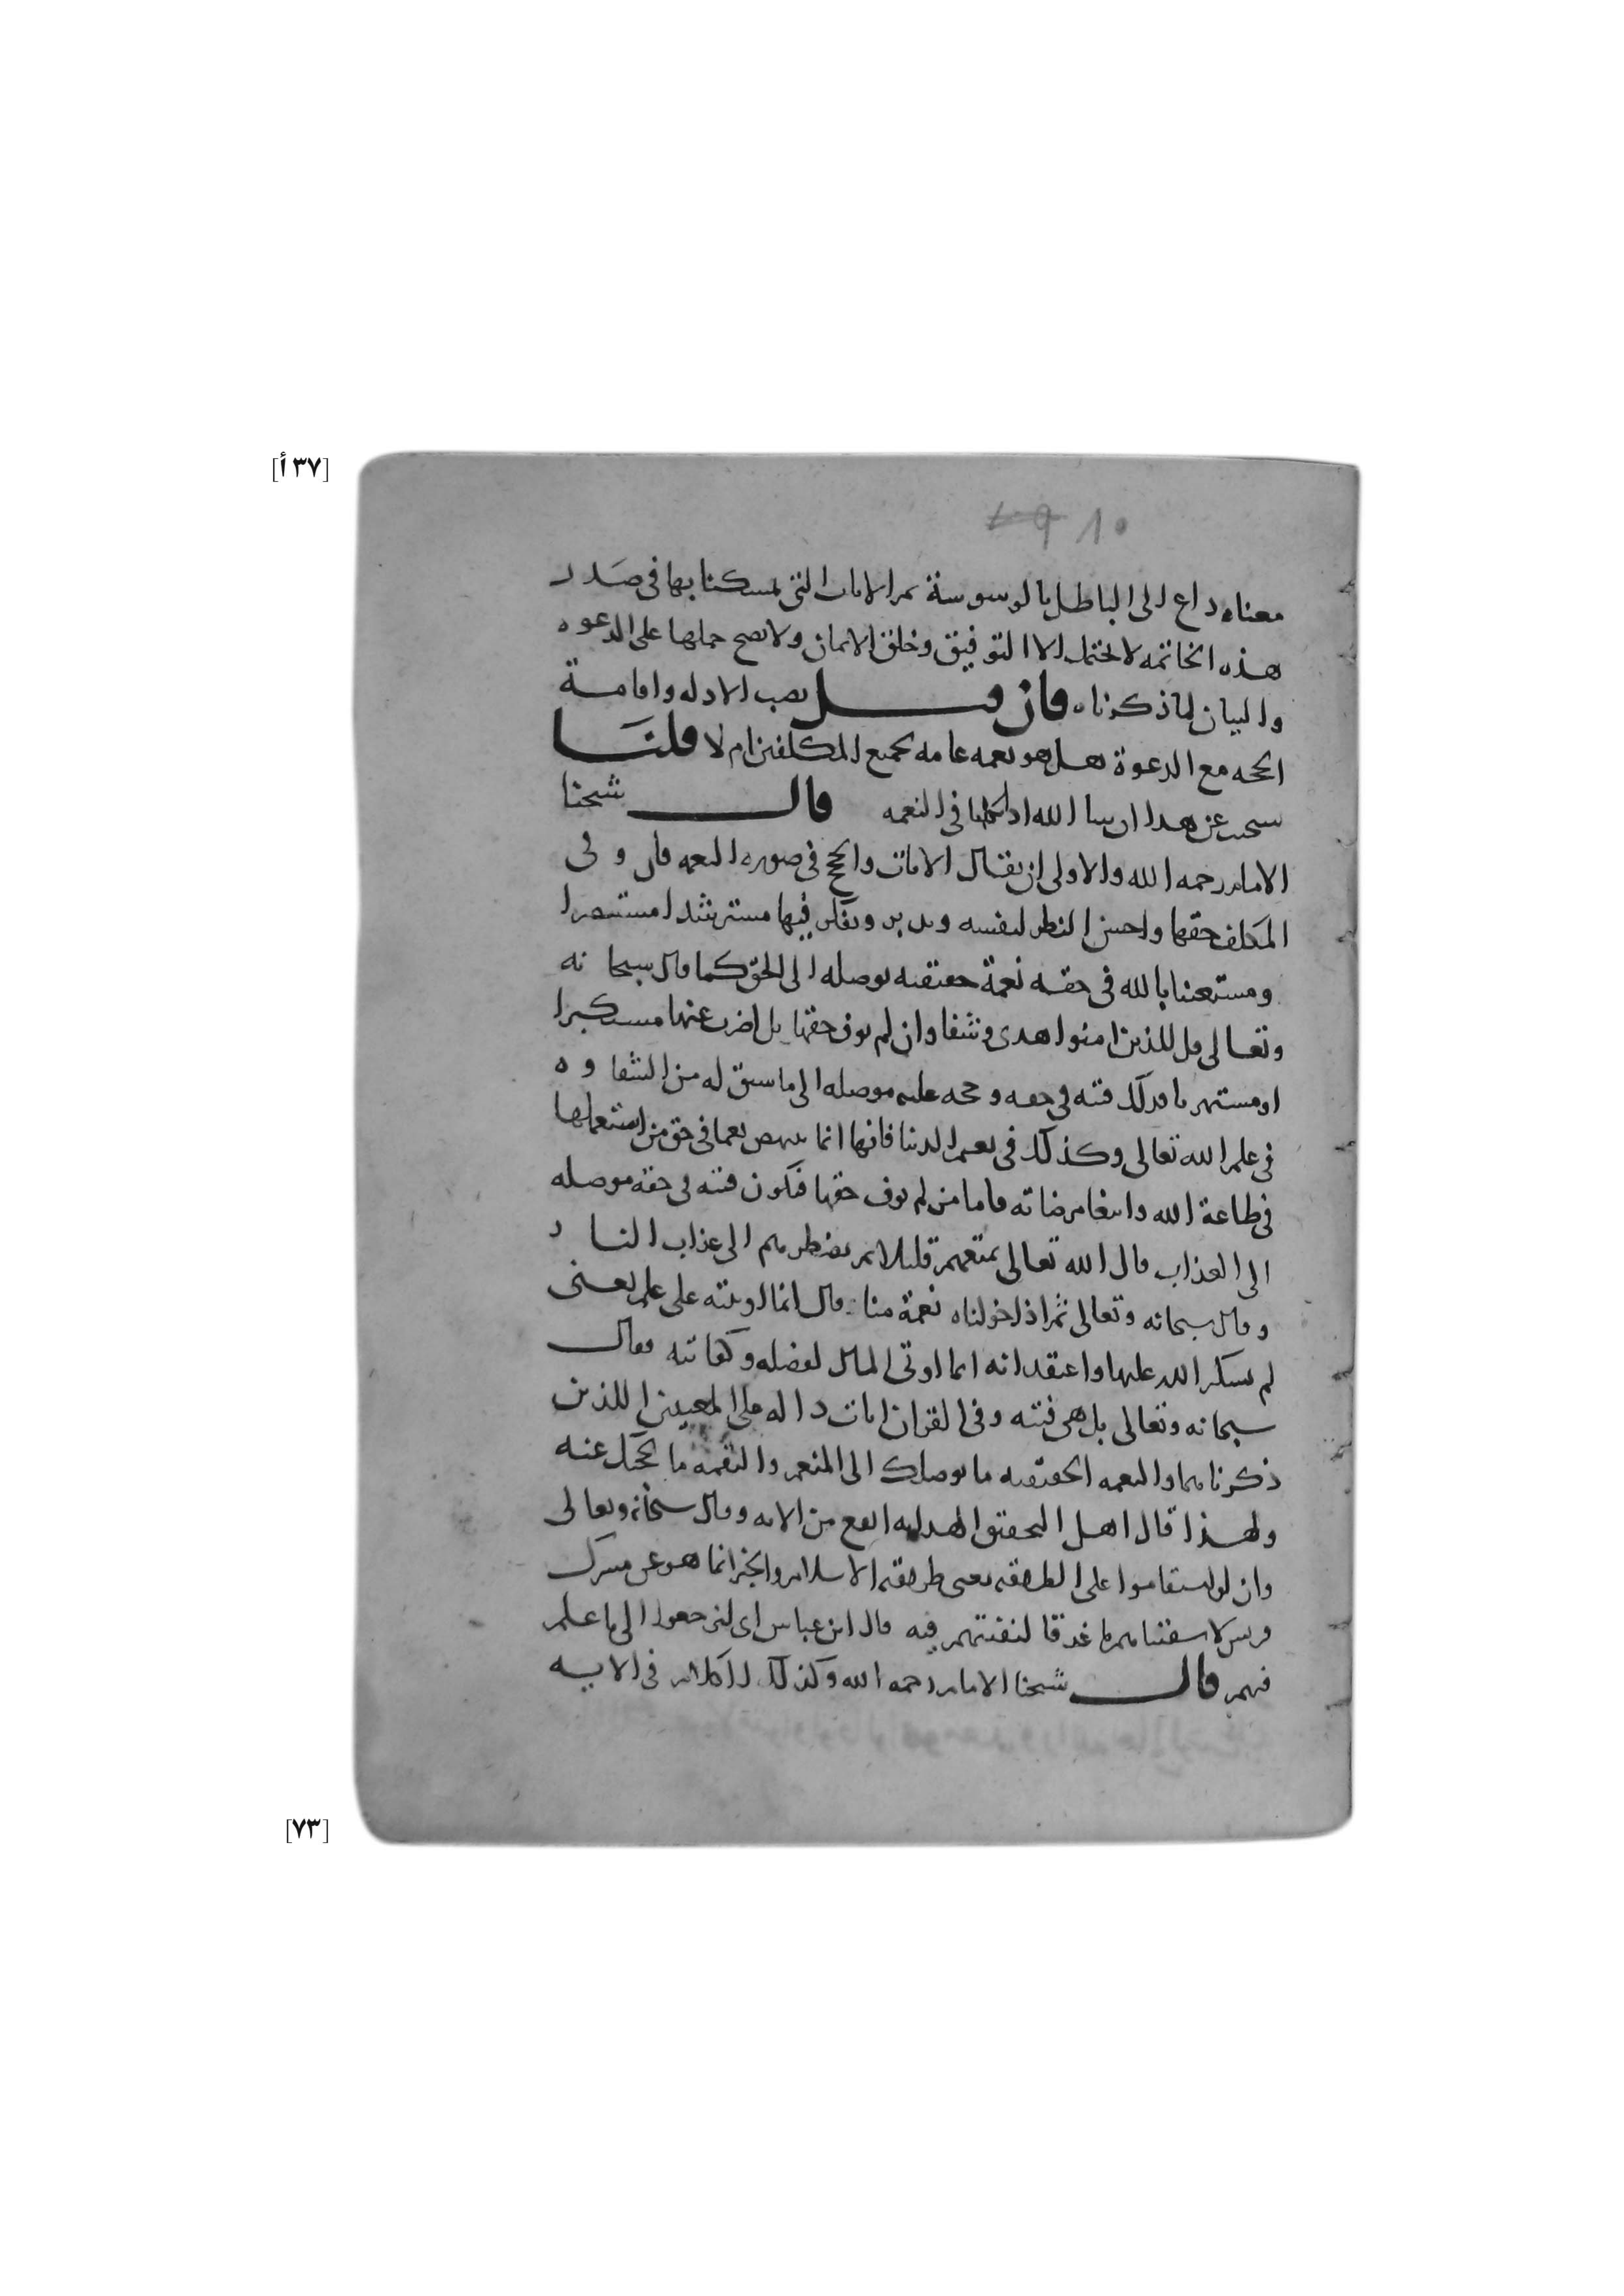 [٣٧ أ]
٨٥
معناه داع الى الباطل بالوسوسة ثم الايات التي تمسكنا بها في صَدر
هذه الخاتمه لا تحتمل الا التوفيق وخلق الايمان ولا يصح حملها على الدعوه
والبيان لما ذكرناه فان قيل نصب الادله واقامة
الحجه مع الدعوة هل هو نعمه عامه لجميع المكلفين ام لا قلنَا
سنجيب عن هذا ان شا الله اذا تكلمنا في النعمه قال شيخنا
الامام رحمه الله والاولى ان يقال الايات والحجج في صوره النعمه فان وفى
المكلف حقها واحسن النظر لنفسه وتدبر وتفكر فيها مسترشدا مستبصرا
ومستعينا بالله في حقه نعمة حقيقيه توصله الى الحق كما قال سبحانه
وتعالى قل للذين امنوا هدى وشفا وان لم يوف حقها بل اضرب عنها مستكبرا
او مستهزيا فذلك فتنه في حقه وحجه عليه موصله الى ما سبق له من الشقاوه
في علم الله تعالى وكذلك في نعيم الدنيا فانها انما نعما في حق من استعملها
في طاعة الله وابتغا مرضاته فاما من لم يوف حقها فتكون فتنه في حقه موصله
الى العذاب قال الله تعالى نمتعهم قليلا ثم نضطرهم الى عذاب النار
وقال سبحانه وتعالى ثم اذا خولناه نعمة منا قال انما اوتيته على علم يعني
لم يشكر الله عليها واعتقد انه انما اوتي المال لفضله وكفايته فقال
سبحانه وتعالى بل هي فتنه وفي القران ايات داله على المعنيين اللذين
ذكرناهما والنعمه الحقيقيه ما يوصلك الى المنعم والنقمه ما يحجبك عنه
ولهذا قال اهل التحقيق الهدايه انفع من الايه وقال سبحانه وتعالى
وان لو استقاموا على الطريقه يعني طريقه الاسلام والخبر انما هو عن مشركي
قريش لاسقيناهم ما غدقا لنفتنهم فيه قال ابن عباس اي لنرجعوا الى ما علم
فيهم قال شيخنا الامام رحمه الله وكذلك الكلام في الايه
[٧٣]